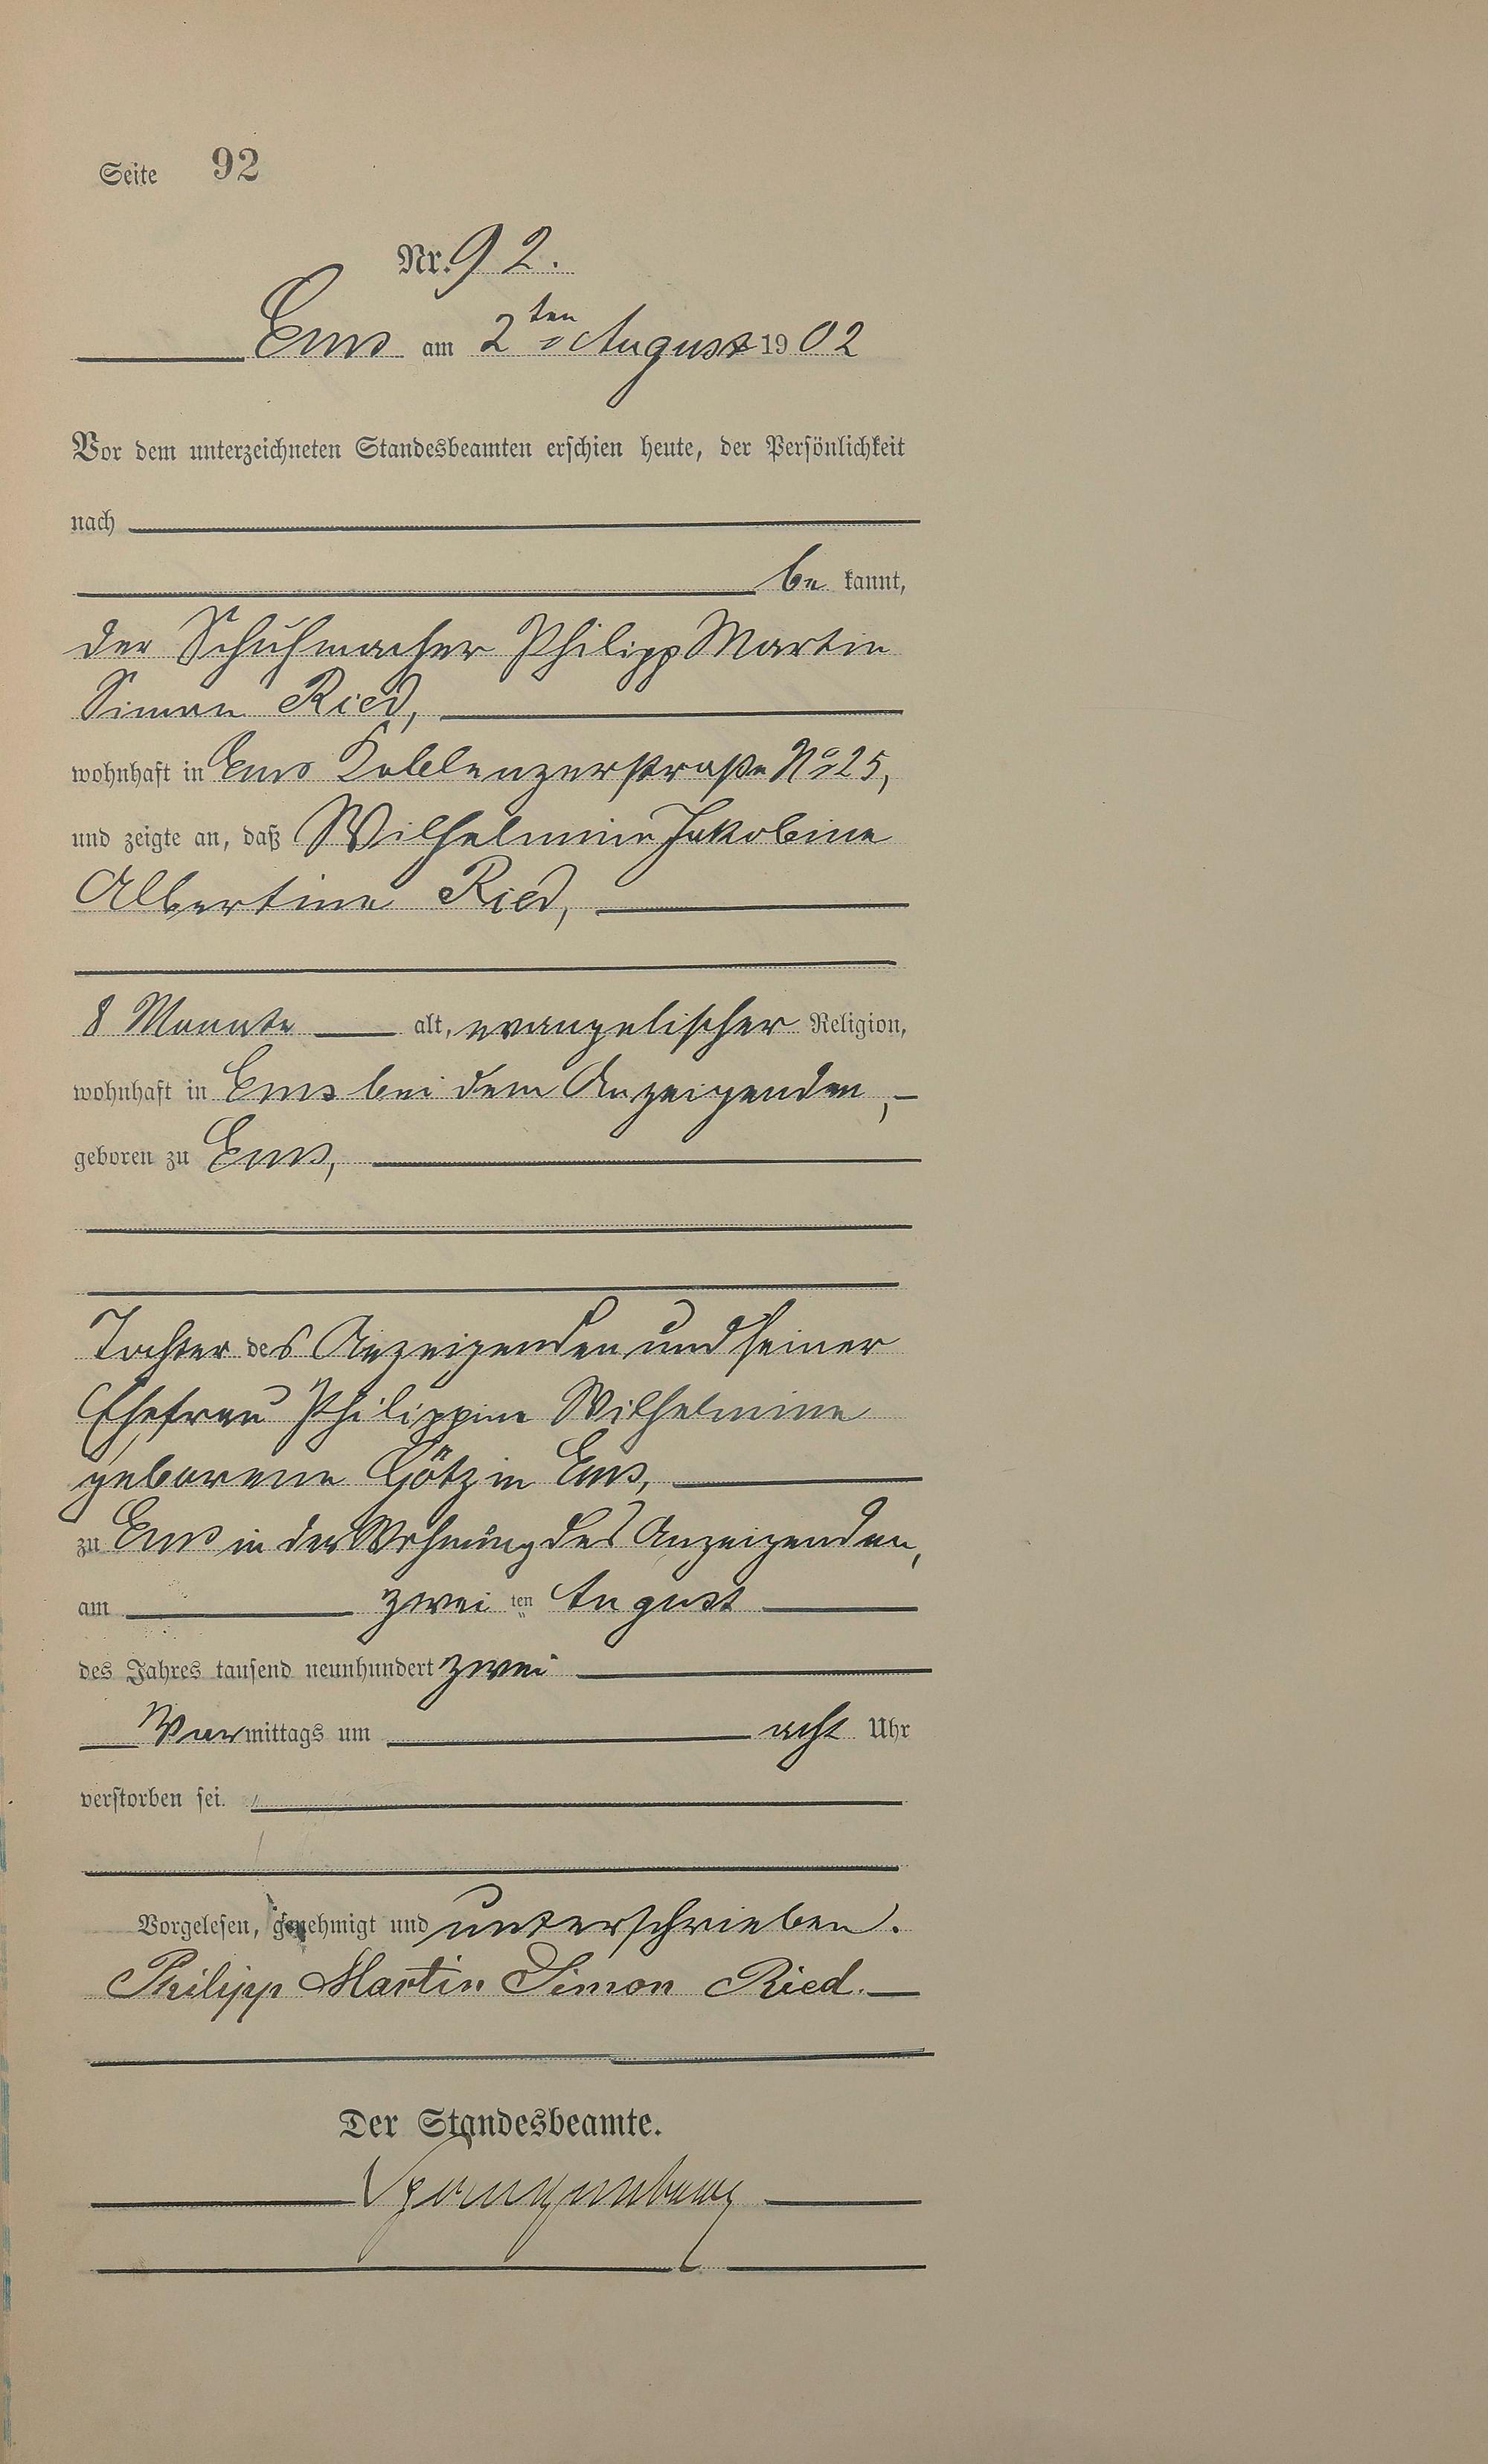 Seite 92
Nr. 92.
Ems am 2ten August 1902
Vor dem unterzeichneten Standesbeamten erschien heute, der Persönlichkeit
nach
be kannt,
der Schuhmacher Philipp Martin
Simon Ried,
wohnhaft in Ems Koblenzerstraße No 25,
und zeigte an, daß Wilhelmine Jakobine
Albertine Ried,
8 Monate alt, evangelischer Religion,
wohnhaft in Ems bei dem Anzeigenden,
geboren zu Ems,
Tochter des Anzeigenden und seiner
Ehefrau Philippine Wilhelmine
geborene Götz in Ems,
zu Ems in der Wohnung des Anzeigenden,
am zwei ten August
des Jahres tausend neunhundert zwei
Vormittags um acht Uhr
verstorben sei.
Vorgelesen, genehmigt und unterschrieben.
Philipp Martin Simon Ried.
Der Standesbeamte.